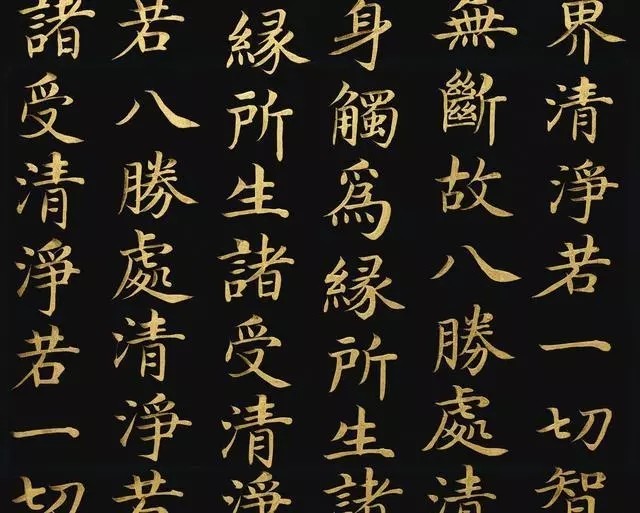 界清淨若一切智
無斷故八勝處清
身觸為緣所生諸
緣所生諸受清淨
若八勝處清淨若
諸受清淨若一切